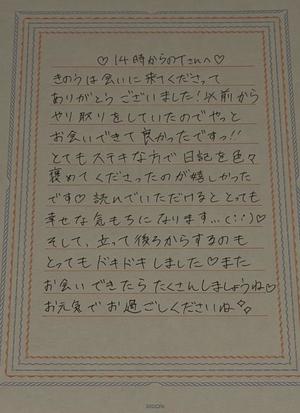 ♡14時からのTさんへ♡
きのうは会いに来てくださって
ありがとうございました!以前から
やり取りをしていたのでやっと
お会いできて良かったですっ!!
とてもステキな方で日記を色々
褒めてくださったのが嬉しかった
です♡読んでいただけるととっても
幸せな気もちになります…(:'-')♡
そして、立って後ろからするのも
とってもドキドキしました♡また
お会いできたらたくさんしましょうね♡
お元気でお過ごしくださいね
MIDORI